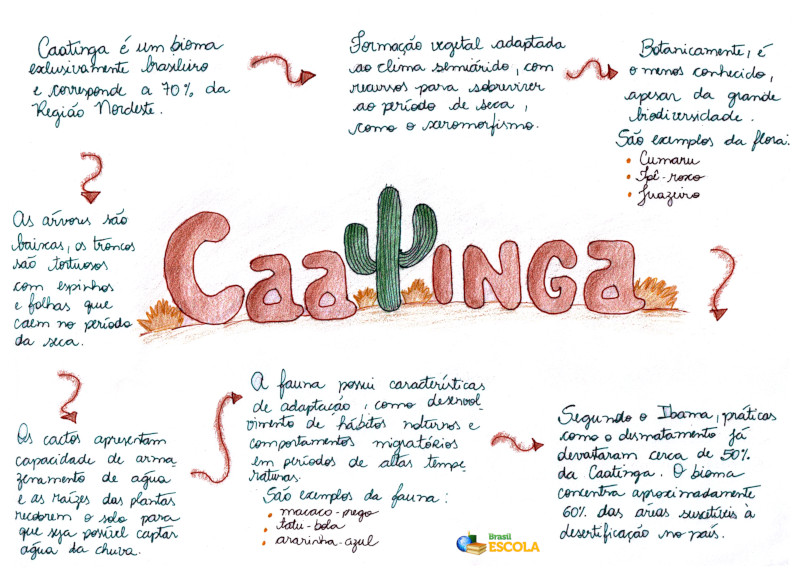 Caatinga é um bioma
exclusivamente brasileiro
e corresponde a 70% da
Região Nordeste.
Formação vegetal adaptada
ao clima semiárido, com
recursos para sobreviver
ao período de seca,
como o xeromorfismo.
Botanicamente, é
o menos conhecido,
apesar da grande
biodiversidade.
São exemplos da flora:
• Cumaru
• Ipê-roxo
• Juazeiro
CaaTINGa
As árvores são
baixas, os troncos
são tortuosos
com espinhos
e folhas que
caem no período
da seca.
Os cactos apresentam
capacidade de arma-
zenamento de água
e as raízes das plantas
recobrem o solo para
que seja possível captar
água da chuva.
A fauna possui características
de adaptação, como desenvol-
vimento de hábitos noturnos e
comportamentos migratórios
em períodos de altas tempe-
raturas.
São exemplos da fauna:
• macaco-prego
• tatu-bola
• ararinha-azul
Segundo o Ibama, práticas
como o desmatamento já
devastaram cerca de 50%
da Caatinga. O bioma
concentra aproximadamente
60% das áreas suscetíveis à
desertificação no país.
Brasil
ESCOLA